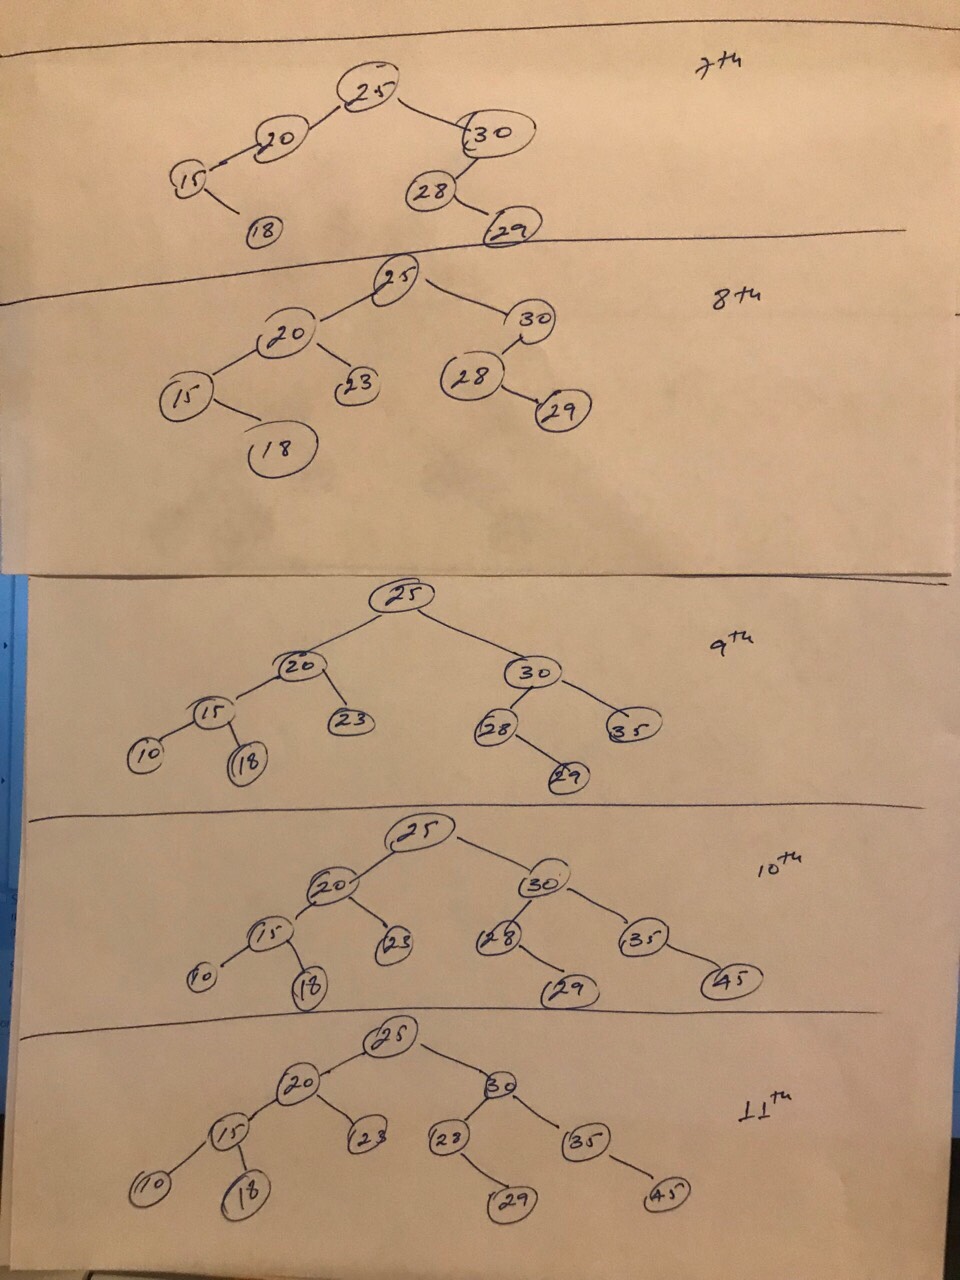 7th
25
20 30
15 28
18 29
8th
25
20 30
15 23 28
18 29
9th
25
20 30
15 23 28 35
10 18 29
10th
25
20 30
15 23 28 35
10 18 29 45
11th
25
20 30
15 23 28 35
10 18 29 45